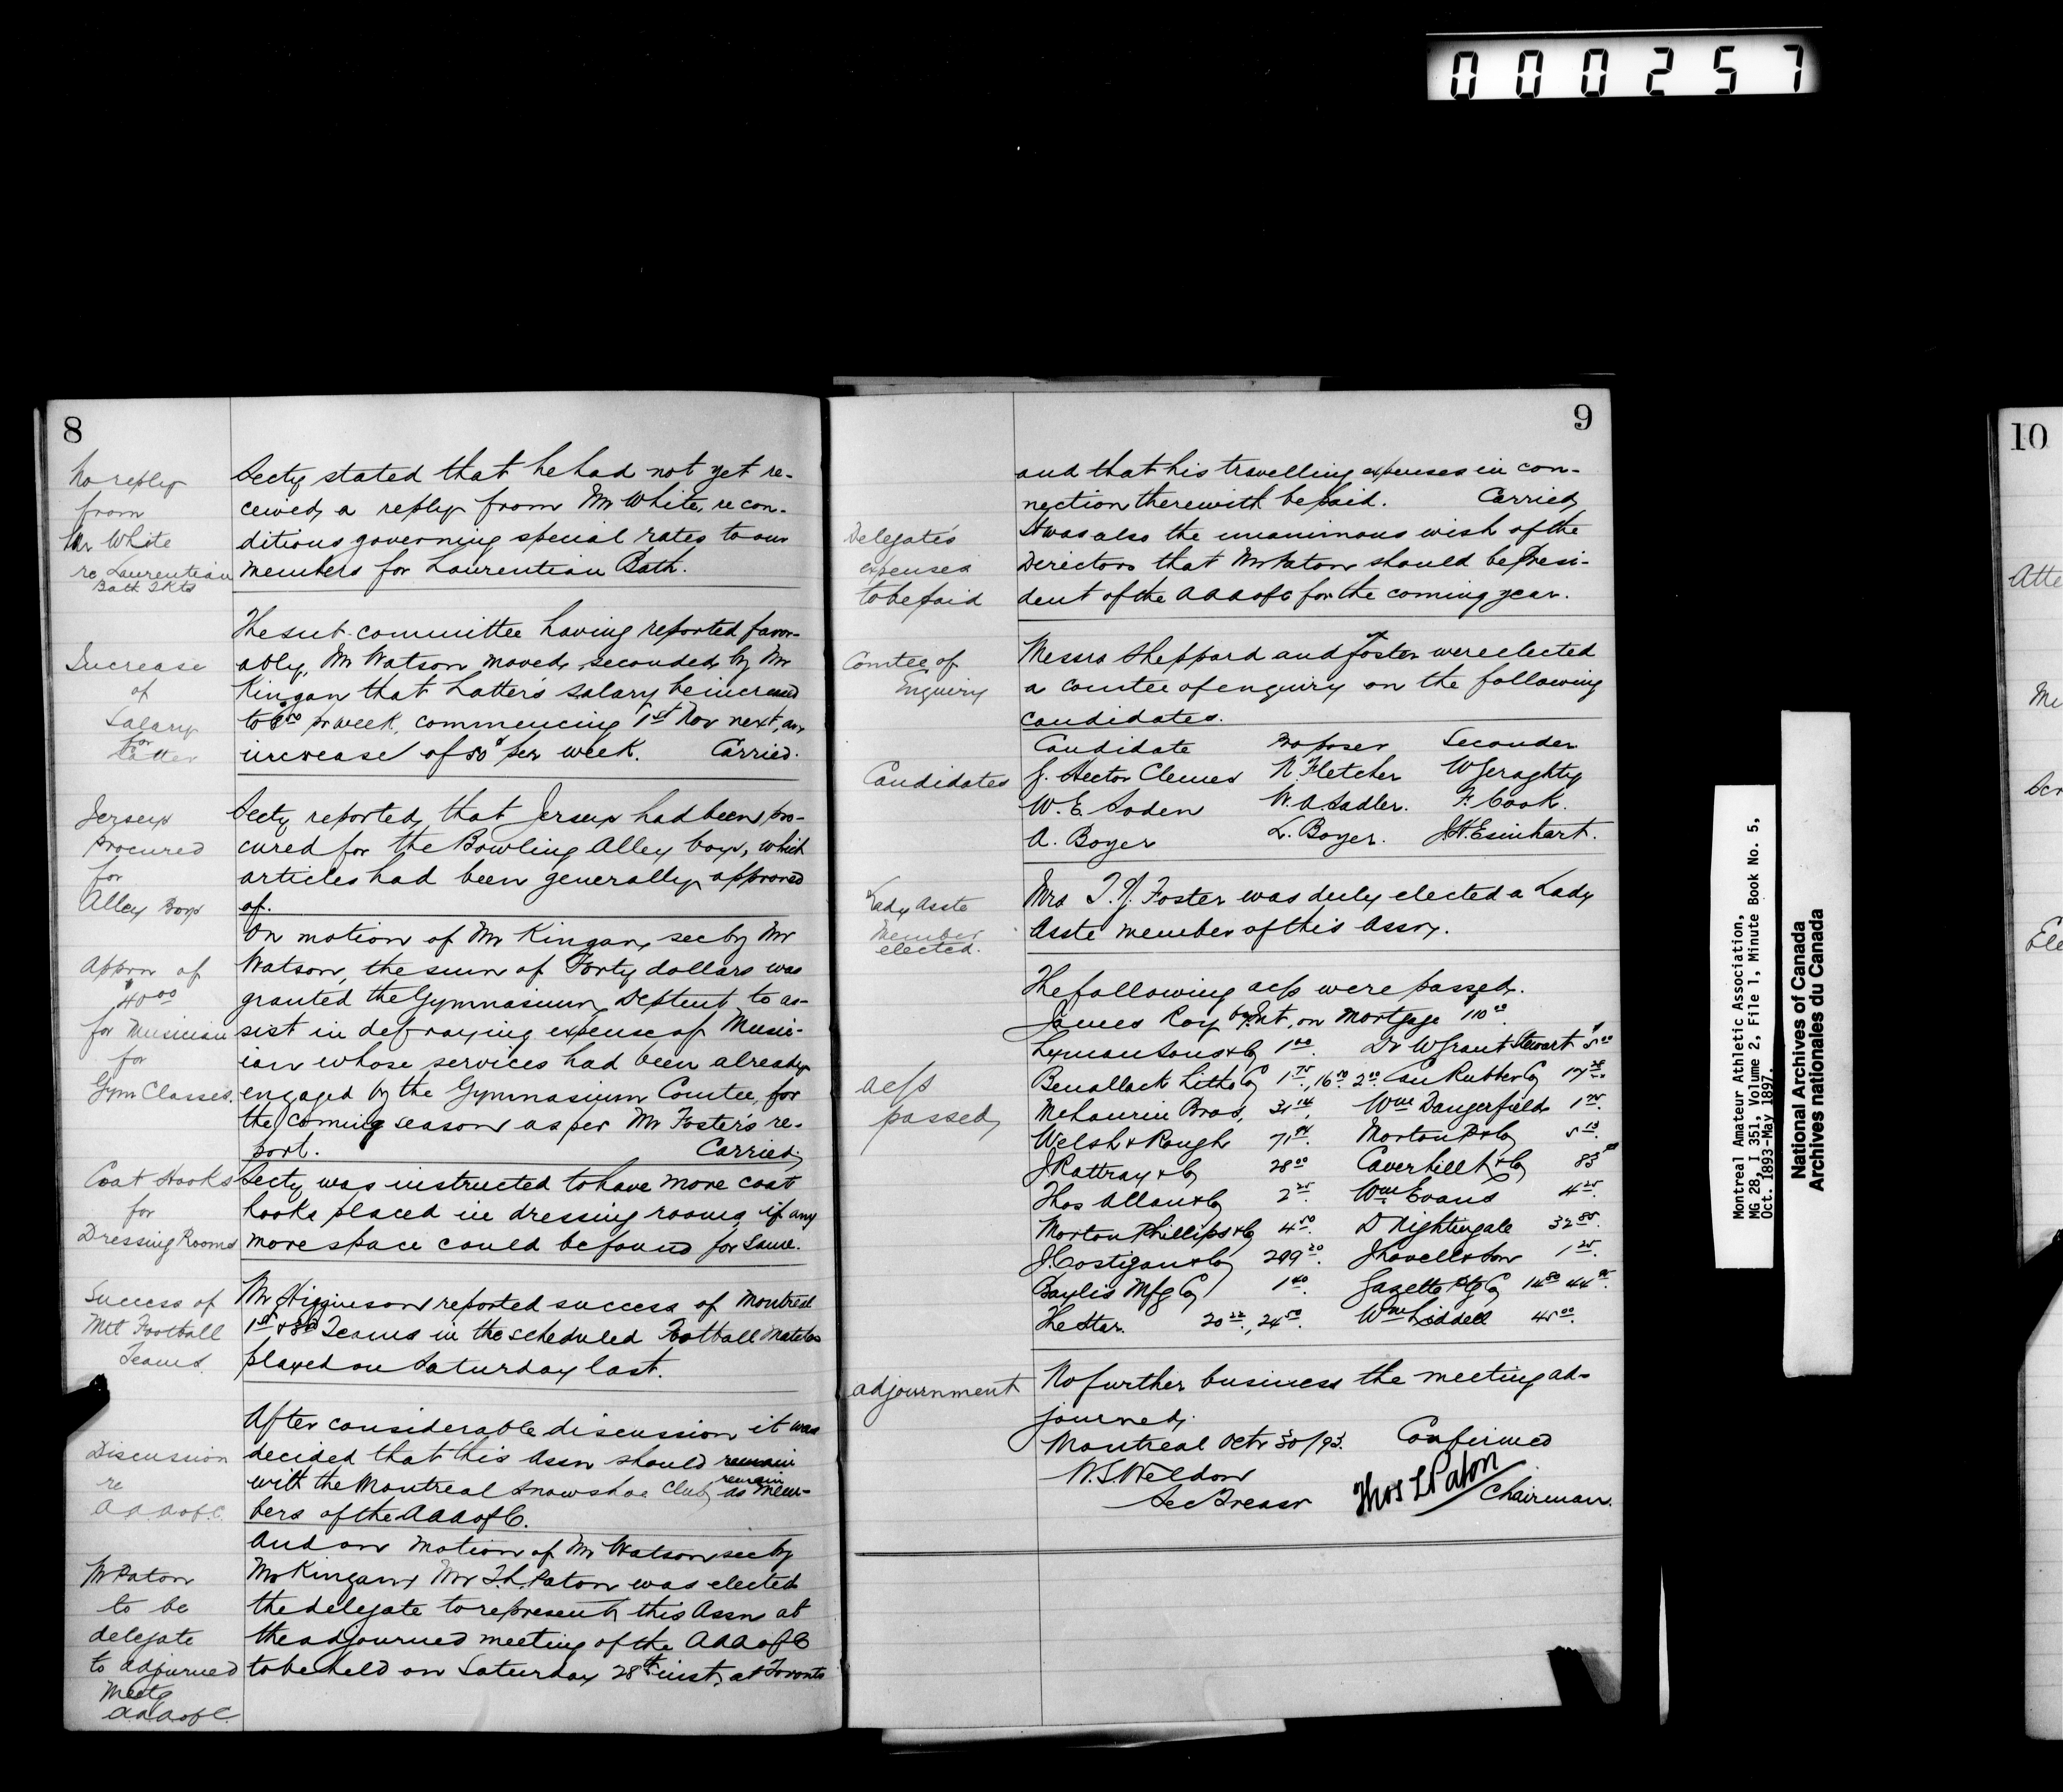 000257
8
No reply
from
Mr White
re Laurentian
Bath Tkts
Secty stated that he had not yet re-
ceived a reply from Mr White, re con-
ditions governing special rates to our
members for Laurentian Bath.
Increase
of
Salary
for
Latter
The sub-committee having reported favor-
ably, Mr Watson moved, seconded by Mr
Kingan that Latter's salary be increased
to per week, commencing 1st Nov next, an
increase of 50¢ per week. Carried.
Jerseys
procured
for
Alley Boys
Secty reported, that Jerseys had been pro-
cured for the Bowling Alley boys, which
articles had been generally approved
of.
Apprn of
$40.00
for Musician
for
Gym Classes.
On motion of Mr Kingan, sec by Mr
Watson, the sum of Forty dollars was
granted the Gymnasium Deptent to as-
sist in defraying expense of Music-
ian whose services had been already
engaged by the Gymnasium Comtee, for
the coming season as per Mr Foster's re-
port. Carried,
Coat Hooks
for
Dressing Rooms
Secty was instructed to have more coat
hooks placed in dressing rooms, if any
more space could be found for same.
Success of
Mtl Football
Teams
Mr Higginson reported success of Montreal
1st & 3rd Teams in the scheduled Football Matches
played on Saturday last.
Discussion
re
A.A.A of C.
After considerable discussion it was
decided that this Assn should remain
with the Montreal Snowshoe Club, remain as mem-
bers of the AAA of C.
Mr Paton
to be
delegate
to adjourned
Meetg
AAA of C.
And on motion of Mr Watson sec by
Mr Kingan, Mr T.L. Paton was elected
the delegate to represent this Assn at
the adjourned meeting of the AAA of C
to be held on Saturday 28th inst, at Toronto
9
and that his travelling expenses in con-
nection therewith be paid. Carried,
Delegate's
expenses
to be paid
It was also the unanimous wish of the
Directors that Mr Paton should be Presi-
dent of the AAA of C for the coming year.
Comtee of
Enquiry
Messrs Sheppard and Foster were elected
a comtee of enquiry on the following
candidates.
Candidate Proposer Seconder
Candidates
J. Hector Clemes N. Fletcher W Geraghty
W.E. Soden W.A. Sadler. F. Cook.
A. Boyer L. Boyer. J.H. Esinhart.
Lady Asste
Member
elected.
Mrs T.J. Foster was duly elected a Lady
Asste member of this Assn.
The following a/cs were passed.
James Roy Int, on Mortgage $110.00
Lyman Sons & Co 1.00. Dr W Grant Stewart $5.00
a/cs
passed,
Benallack Litho Co 1.75, 16.50 2.00. Can Rubber Co
McLaurin Bros, 31.14, Wm Dangerfield 1.75.
Welsh & Rough Morton P & Co 5.13.
J Rattray & Co 28.00 Caverhill K & Co
Thos Allan & Co 2.25. Wm Evans 4.25.
Morton Phillips & Co 4.50 D Nightingale 32.85.
J. Costigan & Co J Lovell & Son 1.25.
Baylis Mfg Co 1.40. Gazette Ptg Co
The Star. 24.50. Wm Liddell 45.00.
adjournment
No further business the meeting ad-
journed,
Montreal Octr 30/93. Confirmed
W.S. Weldon
Sec Treasr
Thos L Paton
Chairman.
10
Atte
Ele
Montreal Amateur Athletic Association,
MG 28, I 351, Volume 2, File 1, Minute Book No. 5,
Oct. 1893-May 1897.
National Archives of Canada
Archives nationales du Canada